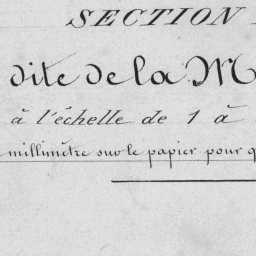 SECTION
dite de la M
à l'échelle de 1 à
millimètre sur le papier pour q